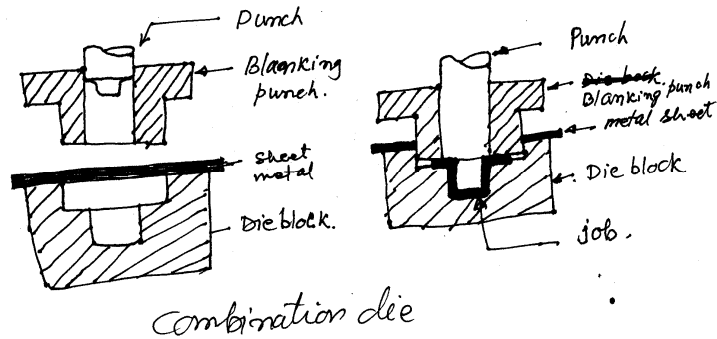 Punch
Blanking
punch.
sheet
metal
Die block.
Punch
Die bock
Blanking punch
metal sheet
Die block
job.
Combination die